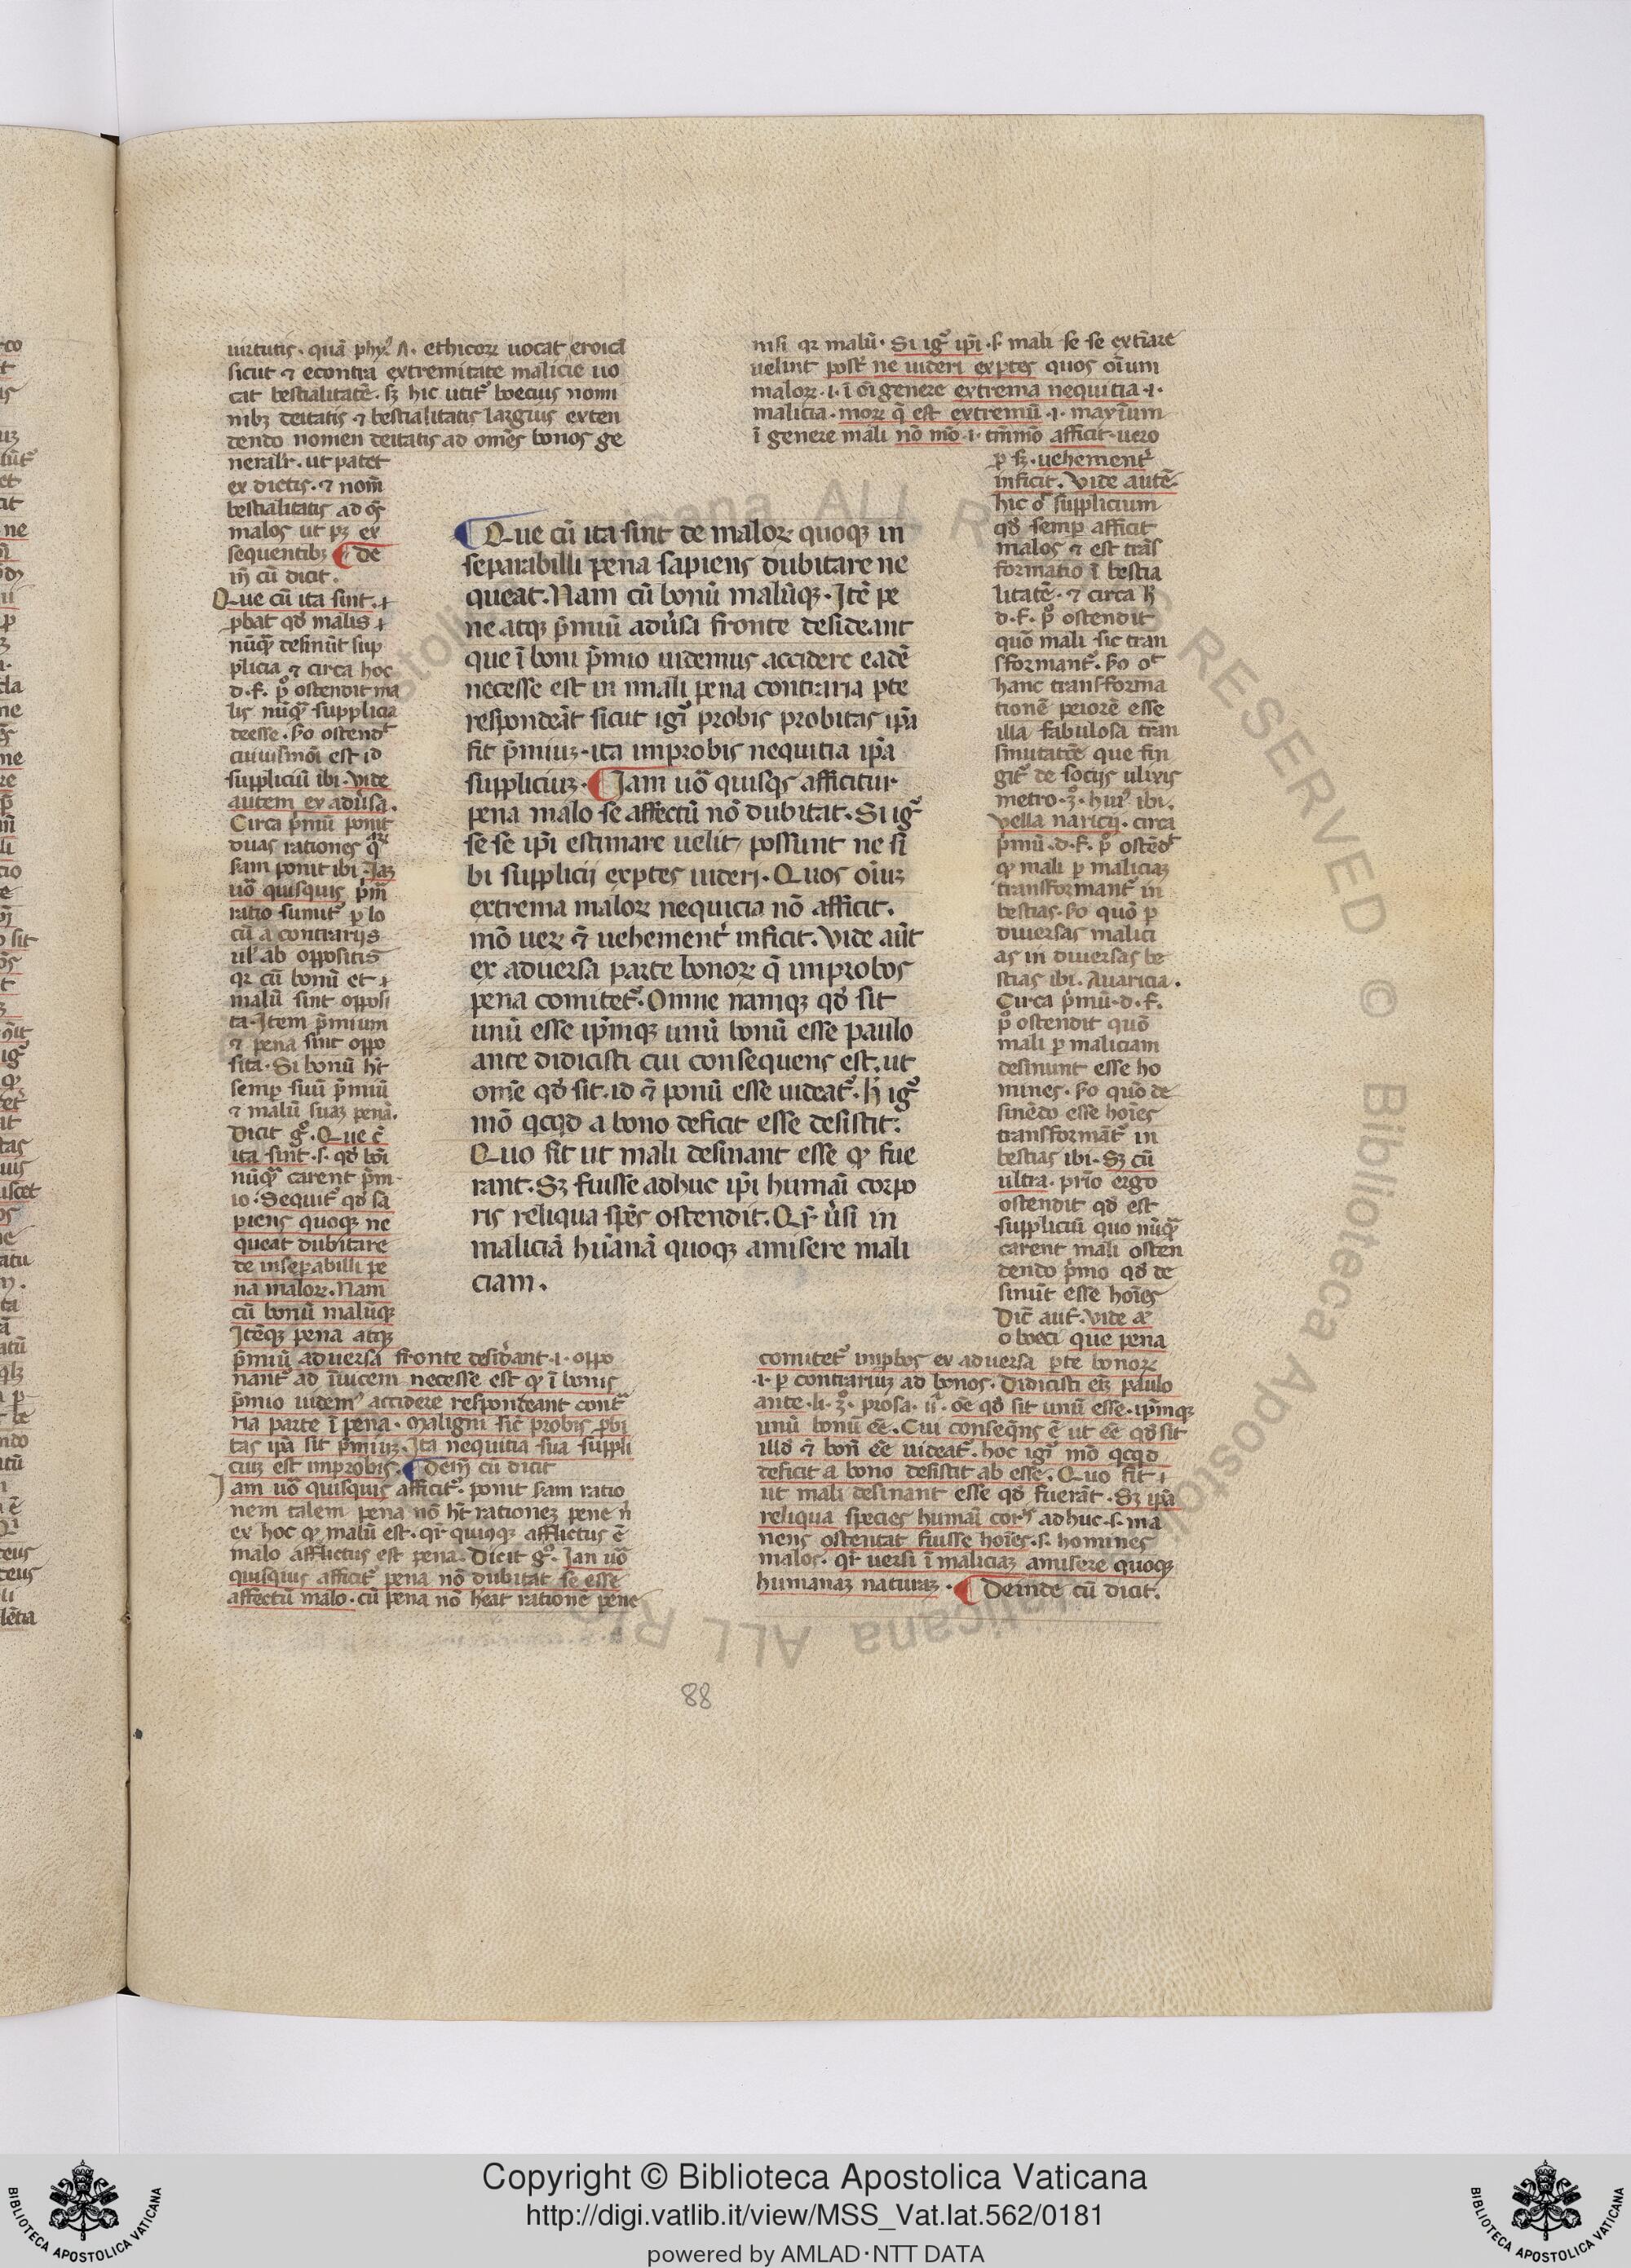 uirtutis · quā phyꝰ A · ethicoꝝ uocat eroicā
sicut ⁊ econtra extremitate malicie uo
cat bestialitatē · sꝫ hic utitᷣ boecius nomi
nibꝫ deitatis ⁊ bestialitatis largius exten
dendo nomen deitatis ad omēs bonos ge
neralr̄ · ut patet
ex dictis · ⁊ nom̄
bestialitatis ad oēs
malos ut pꝫ ex
sequentibꝫ ¶ de
in̄ cū dicit .
Que cū ita sint . ⁊
ꝓbat qđ malis ⁊
nūqᷓ desinūt sup
plicia ⁊ circa hoc
d · f · pº ostendit ma
lis nūqᷓ supplicia
deesse · so ostendᵗ
cuiusmōi est id
suppliciū ibi · Vide
autem ex adūsa .
Circa pͥmū ponit
duas rationes qᷓꝝ
sam ponit ibi · Jaꝫ
uō quisquis pͥm̄
ratio sumitᷣ ꝑ lo
cū a contrarijs
ul̓ ab oppositis
qꝛ cū bonū et ⁊
malū sint opposi
ta · Item pͥmium
⁊ pena sint oppo
sita · Si bonū ht̄
semꝑ suū pͥmiū
⁊ malū suaꝫ penā .
Dicit gͦ · Que c̄
ita sint · s · qđ bōi
nūqᷓ carent pͥm
io · Sequitᷣ qđ sa
piens quoqꝫ ne
queat dubitare
de inseparabilli pe
na maloꝝ · Nam
cū bonū malūqꝫ
Itēqꝫ pena atqꝫ
pͥmiū aduersa fronte desiđant · i · oppo
nantᷣ ad īuicem necesse est qꝙ ī bonis
pͥmio uidemꝰ accidere respondeant contᷓ
ria parte ī pena · maligni sic̄ probis ꝓbi
tas ipā sit pͥmiuꝫ · Ita nequitia sua suppli
ciuꝫ est improbis · ¶ Dein̄ cū dicit
Jam uō quisquis afficitᷣ · ponit sam ratio
nem talem pena nō ht̄ rationeꝫ pene nͥ
ex hoc qꝙ malū est · qꝛ quicqꝫ afflictus ē
malo afflictus est pena · Dicit gͦ · Jan uō
quisquis afficitᷣ pena nō dubitat se esse
affectū malo · cū pena nō heat ratione pene
¶ Que cū ita sint de maloꝝ quoqꝫ in
separabilli pena sapiens dubitare ne
queat . Nam cū bonū malūqꝫ · Itē pe
ne atqꝫ pͥmiū adūsa fronte desideant
que ī boni pͥmio uidemus accidere eadē
necesse est in mali pena contraria ꝑte
respondeāt sicut igiᷣ probis probitas ipā
fit pͥmiuꝫ · ita improbis nequitia ipā
supplicíuꝫ · ¶ Jam uō quisqs afficitur ·
pena malo se affectū nō dubitat · Si igᷣ
se se ipi estimare uelit possunt ne si
bi supplicij exꝑtes uideri · Quos oīuꝫ
extrema maloꝝ nequicia nō afficit .
mō ueꝝ ēͭ uehementͬ inficit . Vide aūt
ex aduersa parte bonoꝝ q̄ improbos
pena comitetᷣ . Omne namqꝫ qđ sit
unū esse ipͥmqꝫ unū bonū esse paulo
ante didicisti cui consequens est . ut
omē qđ sit · id ēͭ ponū esse uideatᷣ . h̄ igᷣ
mō qcqd a bono deficit esse desistit :
Quo fit ut mali desinant esse qꝙ fue
rant · Sꝫ fuisse adhuc ipi humāi corpo
ris reliqua spēs ostendit . Qꝛ ūsi in
maliciā hūanā quoqꝫ amisere mali
ciam .
nisi qꝛ malū · Si igᷣ ipi · s mali se se extīare
uelint post̄ ne uideri exꝑtes quos oīum
maloꝝ · i · ī oī genere extrema nequitia · i ·
malicia · moꝝ q̄ est extremū · i · maxīum
ī genere mali nō mō · i · tm̄mō afficit · uero
ꝑ sꝫ · uehementͬ
inficit . Vide autē ·
hic oͩ supplicium
qđ semꝑ afficit
malos ⁊ est trās
formatio ī bestia
litatē · ⁊ circa h̄
d · f · pº ostendit
quō mali sic tran
sformantᷣ · so oᵗ
hanc transforma
tionē peiorē esse
illa fabulosa tran
smutatōe que fin
gitᷣ de socijs ulixis
metro · 3º · huiꝰ ibi .
Vella naricij · circa
pͥmū · d · f · pº ostēdᵗ
qꝙ mali ꝑ maliciaꝫ
transformantᷣ in
bestias · so quō ꝑ
diuersas malici
as in diuersas be
stias ibi . Auaricia .
Circa pͥmū · d · f ·
pº ostendit quō
mali ꝑ maliciam
desinunt esse ho
mines · so quō de
sinēdo esse hoīes
transformātᷣ in
bestias ibi · Sꝫ cū
ultra · prīo ergo
ostendit qđ est
suppliciū quo nūqᷓ
carent mali osten
dendo pͥmo qđ de
sinūt esse hoīes
Dic̄ aut̄ · Vide
o boeci que pena
comitetᷣ improbos ex aduersa ꝑte bonoꝝ
· i · ꝑ contrariuꝫ ad bonos · Didicisti eīꝫ paulo
ante · li · 3º · prosa · ii · oē qđ sit unū esse · ipͥmqꝫ
unū bonū eē . Cui conseqns ē ut eē qđ sit
illđ ēͭ bon̄ eē uideatᷣ . hoc igiᷣ mō qcqd
deficit a bono desistit ab esse . Quo fit ⁊
ut mali desinant esse qđ fuerāt · Sꝫ ipā
reliqua species humāi corꝑis adhuc · s · ma
nens ostentat fuisse hoīes · s · homines
malos · qꝛ uersi ī maliciaꝫ amisere quoqꝫ
humanaꝫ naturaꝫ · ¶ Deinde cū dicit .
88
Copyright © Biblioteca Apostolica Vaticana
http://digi.vatlib.it/view/MSS_Vat.lat.562/0181
powered by AMLAD·NTT DATA
BIBLIOTECA APOSTOLICA VATICANA
BIBLIOTECA APOSTOLICA VATICANA